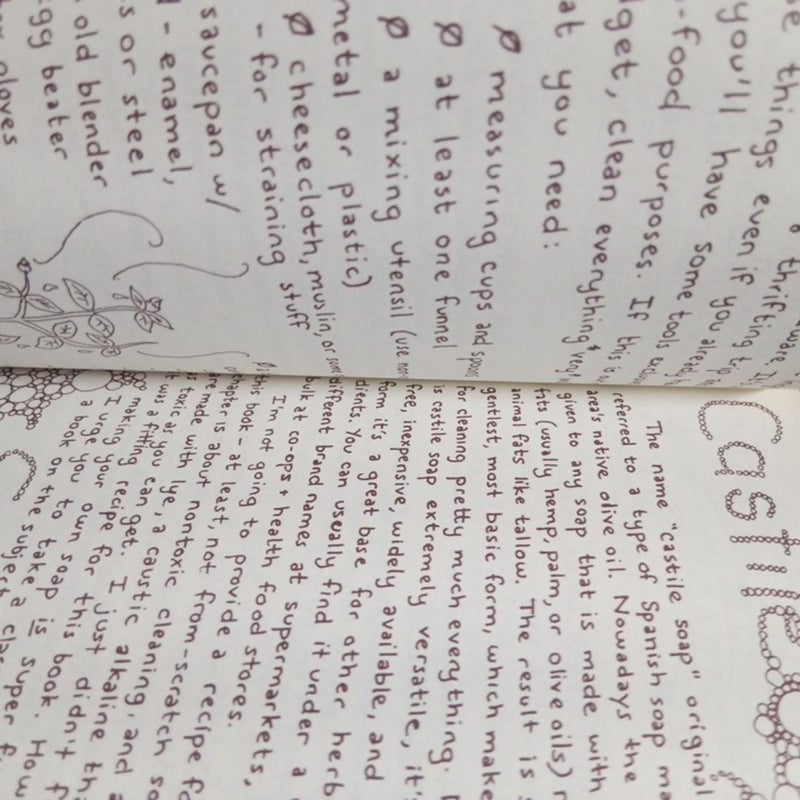 se things even if you already
you'll have some tools
-food purposes. If this is
get, clean everything very
at you need:
Ø measuring cups and
Ø at least one funnel
Ø a mixing utensil (use
metal or plastic)
Ø cheesecloth, muslin, or
- for straining stuff
saucepan w/
- enamel,
s or steel
old blender
gg beater
gloves
Castile
The name "castile soap" original
referred to a type of Spanish soap ma
area's native olive oil. Nowadays the
given to any soap that is made with
(usually hemp, palm, or olive oils) r
animal fats like tallow. The result is
gentlest, most basic form, which make
for cleaning pretty much everything.
is castile soap extremely versatile, it's
free, inexpensive, widely available, and
form it's a great base for other herb
dients. You can usually find it under a
different brand names at supermarkets,
bulk at co-ops + health food stores.
I'm not going to provide a recipe fo
this book - at least, not from-scratch so
chapter is about nontoxic cleaning, and
are made with lye, a caustic alkaline thi
as toxic as you can get. I just didn't f
it was a fitting recipe for this book. How
making your own soap is super f
I urge you to take a cla
a book on the subject